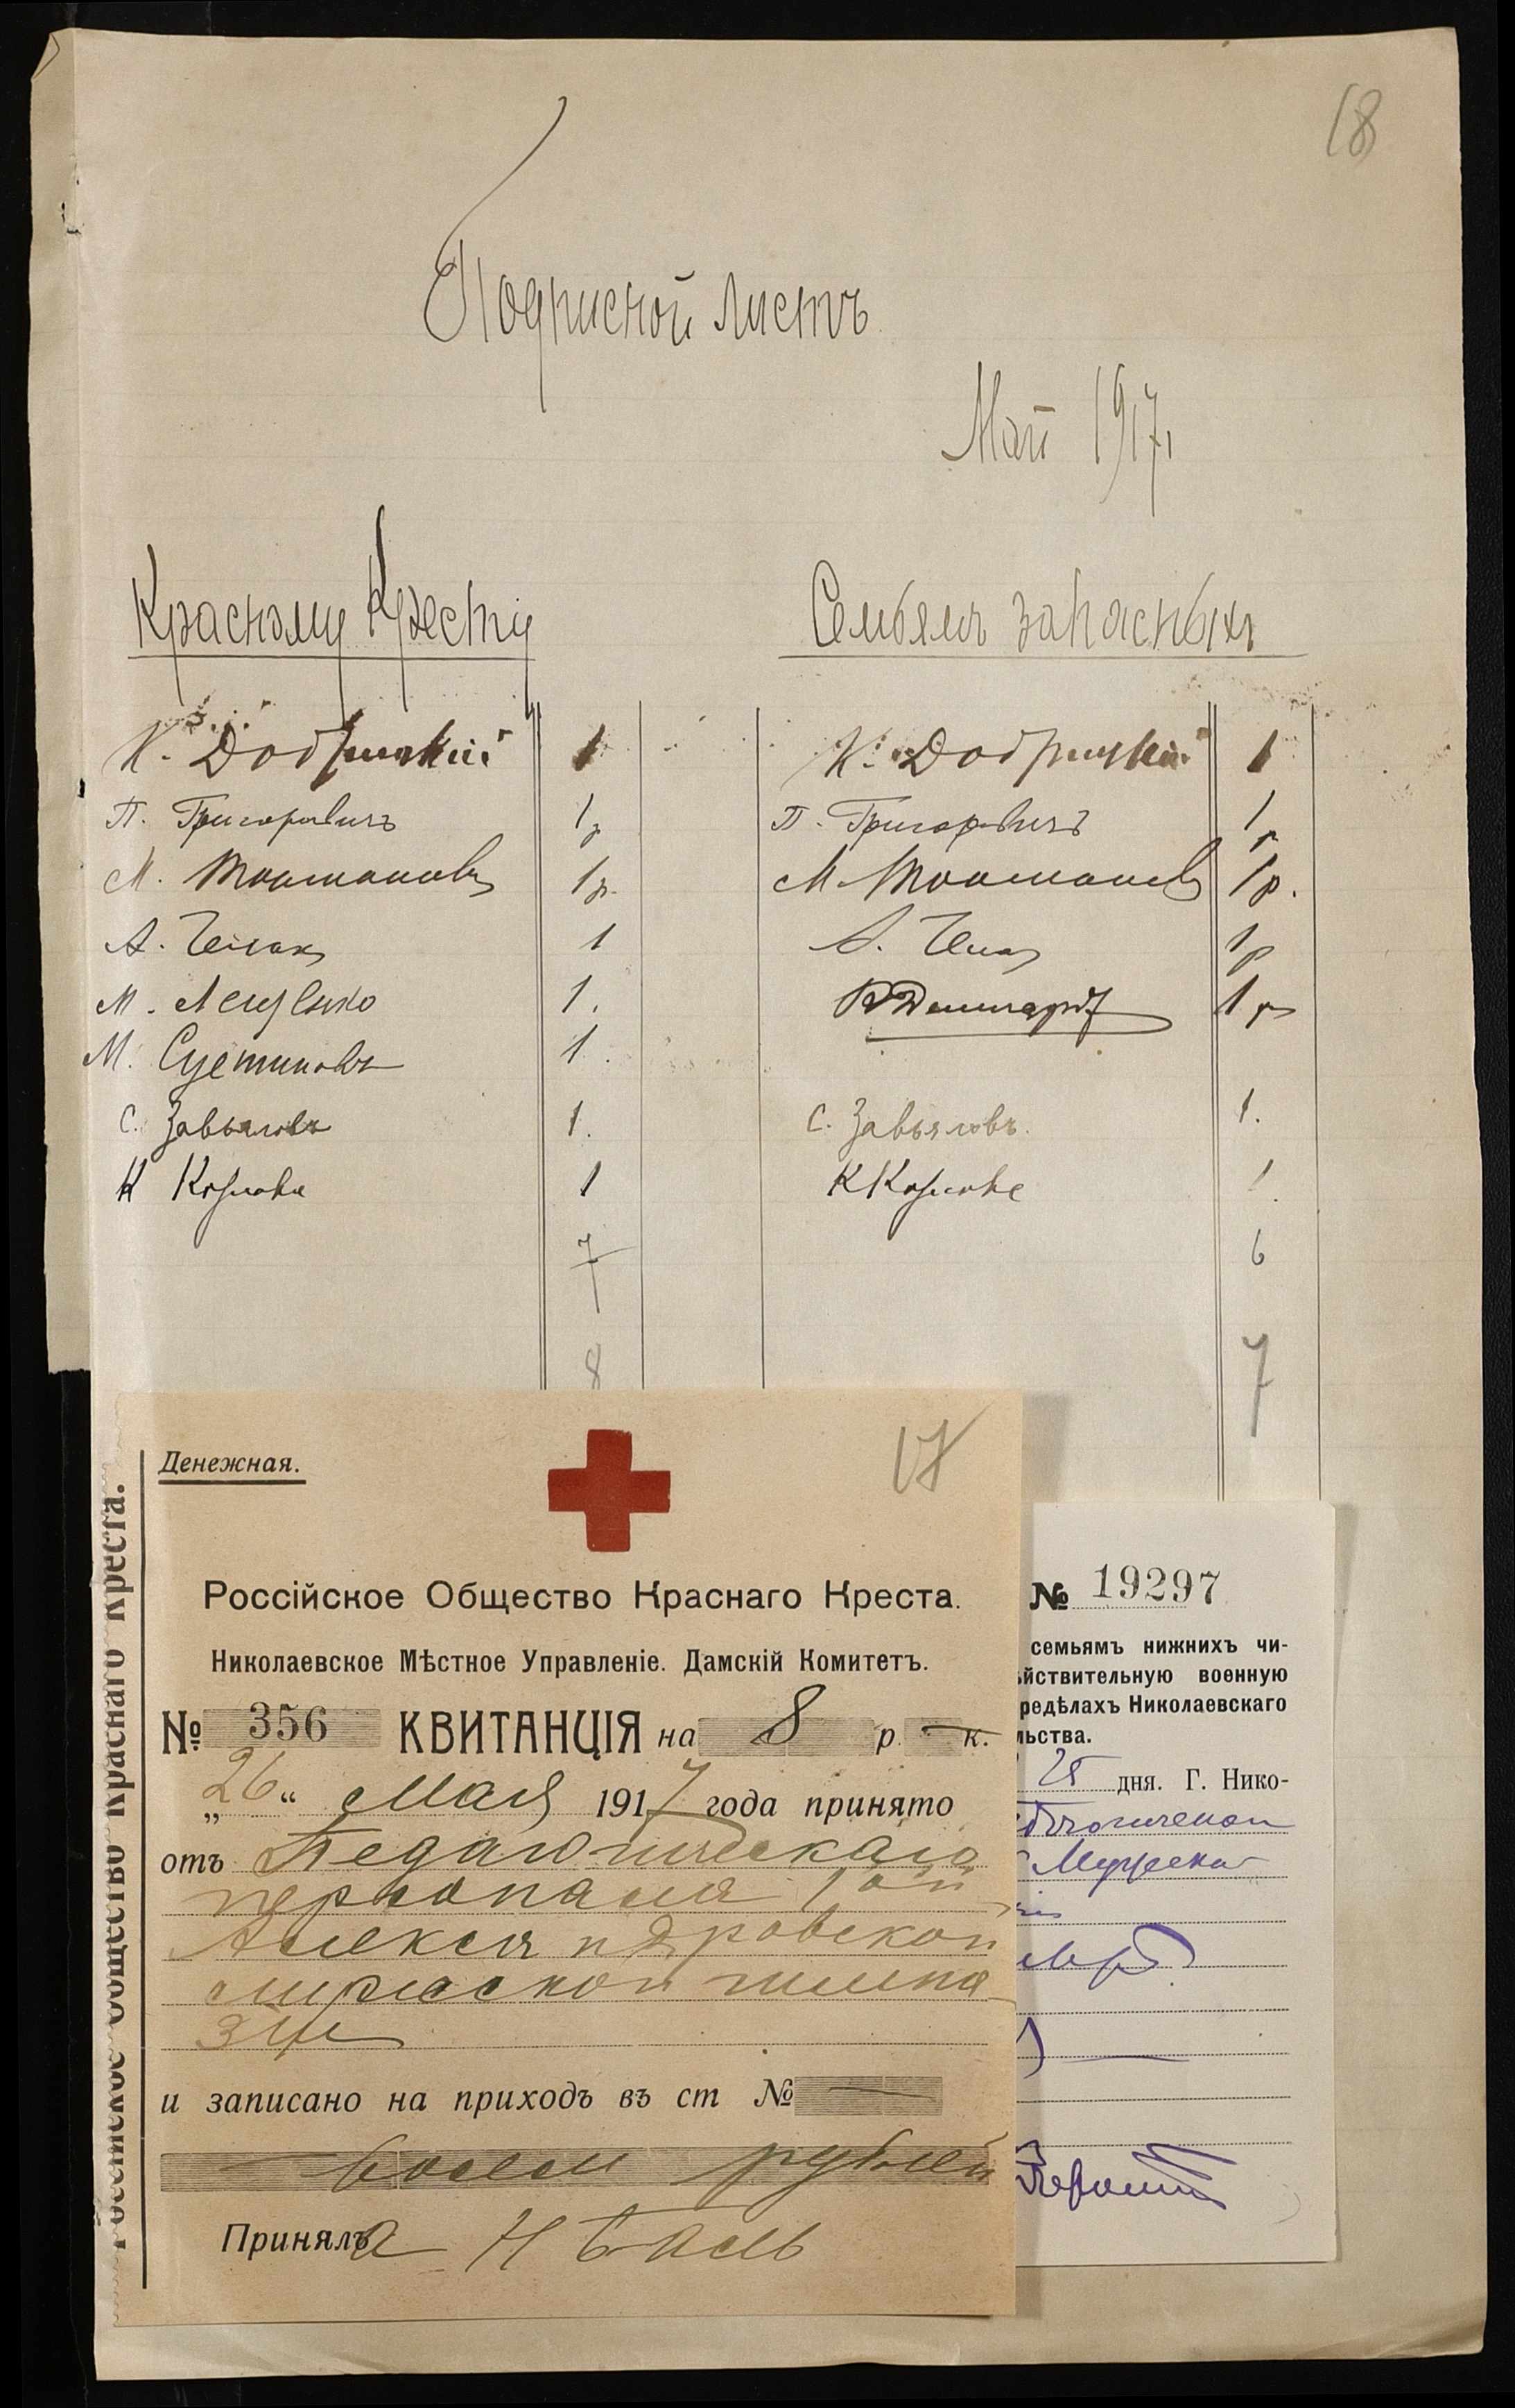 18
Подписной листъ
Май 1917,
Красному Кресту
К. Добрицкій 1
П. Григоровичъ 1 р
М. 1 р.
А. 1
М. 1.
М. Суетиновъ 1.
С. Завьяловъ 1.
К 1
7
8
Семьямъ запасныхъ
К. Добрицкій 1
П. Григоровичъ 1 р
М. 1 р.
А. 1 р
1 р
С. Завьяловъ. 1.
К 1.
6
7
Россійское Общество Краснаго Креста.
17
Денежная.
Россійское Общество Краснаго Креста.
Николаевское Мѣстное Управленіе. Дамскій Комитетъ.
№ 356 КВИТАНЦІЯ на 8 р. — к.
„26“ Мая 1917 года принято
отъ Педагогическаго
персонала 1ой
Александровской
мужской гимна-
зіи
и записано на приходъ въ ст № —
восемь рублей
Приняла
№ 19297
семьямъ нижнихъ чи-
йствительную военную
редѣлахъ Николаевскаго
льства.
25 дня. Г. Нико-
Мужской